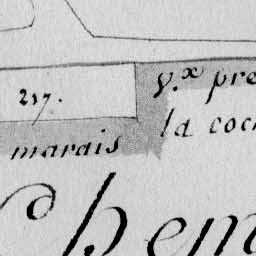 v.x pre
217.
la coc
marais
Chem